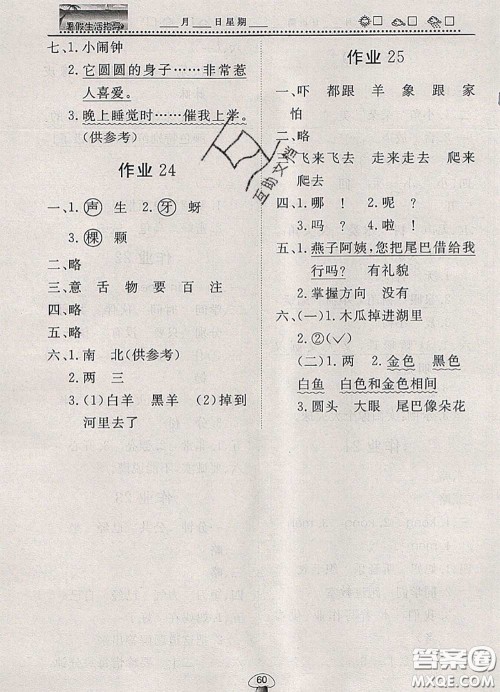 暑假生活指导
月 日星期
七、1. 小闹钟
2. 它圆圆的身子……非常惹
人喜爱。
3. 晚上睡觉时……催我上学。
(供参考)
作业 24
一、1. 声 生 2. 牙 蚜
3. 棵 颗
二、略
三、意 舌 物 要 百 注
四、略
五、略
六、1. 南 北(供参考)
2. 两 三
3. (1)白羊 黑羊 (2)掉到
河里去了
作业 25
一、吓 都 跟 羊 象 跟 家
怕
二、略
三、飞来飞去 走来走去 爬来
爬去
四、1. 哪! 2. 呢?
3. 吗? 4. 啦!
五、1. 燕子阿姨,您把尾巴借给我
行吗? 有礼貌
2. 掌握方向 没有
六、(一)1. 木瓜掉进湖里
2. ②(✓)
(二)1. 两 2. 金色 黑色
白鱼 白色和金色相间
3. 圆头 大眼 尾巴像朵花
互助文档
60
答案圈
MXQE.COM